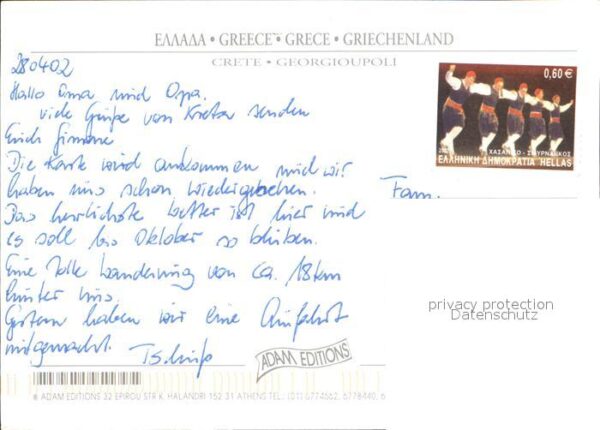 ΕΛΛΑΔΑ • GREECE • GRECE • GRIECHENLAND
CRETE • GEORGIOUPOLI
280402
Hallo Oma und Opa.
viele Grüße von Kreta senden
Euch Simone
Die Karte wird ankommen und wir
haben uns schon wiedergesehen.
Das herrlichste Wetter ist hier und
es soll bis Oktober so bleiben.
Eine tolle Wanderung von ca. 18 km
hinter uns
Gestern haben wir eine
mitgemacht.
Tschüß
0,60 €
ΧΑΣΑΠΙΚΟ - ΣΜΥΡΝΑΙΙΚΟΣ
ΕΛΛΗΝΙΚΗ ΔΗΜΟΚΡΑΤΙΑ HELLAS
Fam.
privacy protection
Datenschutz
ADAM EDITIONS
® ADAM EDITIONS 32 EPIROU STR K. HALANDRI 152 31 ATHENS TEL.: (01) 6774662, 6778440, 6